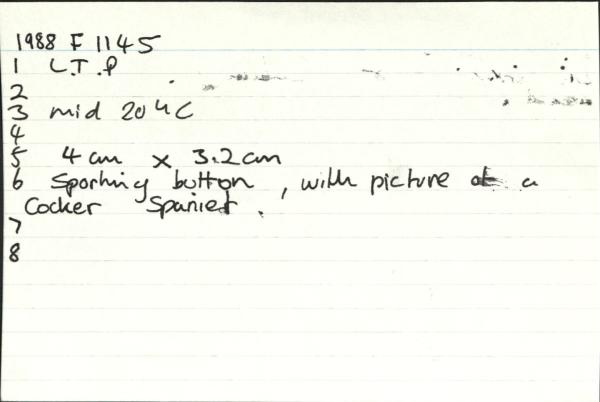 1988 F 1145
1 L.T.P
2
3 mid 20th C
4
5 4 cm x 3.2 cm
6 Sporting button, with picture of a
Cocker Spaniel.
7
8